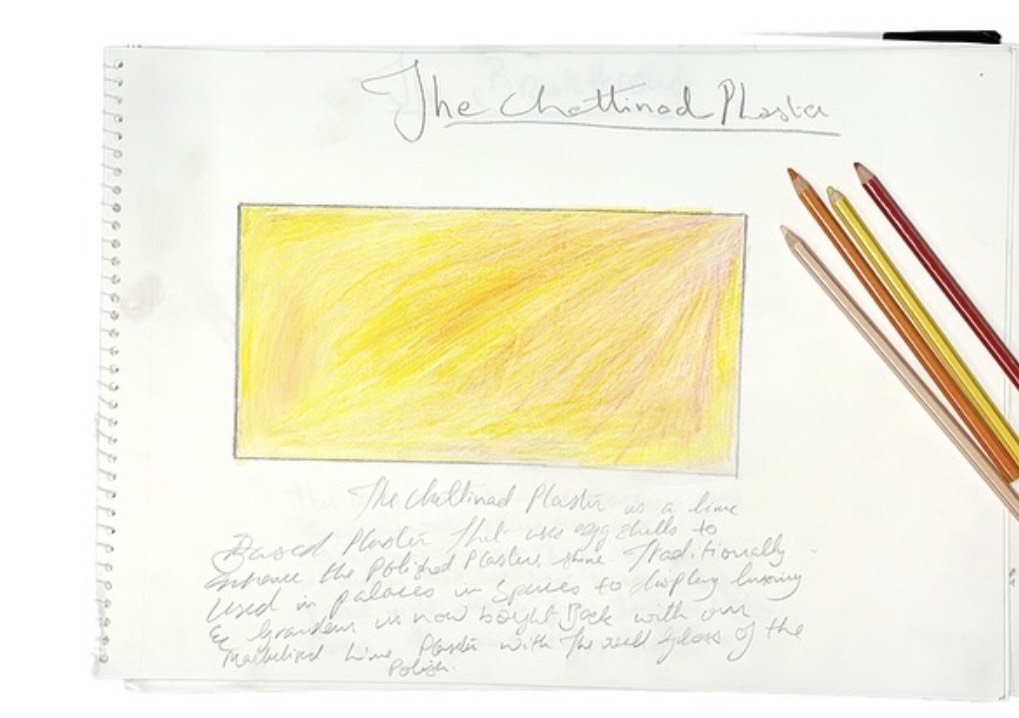 The Chettinad Plaster
The Chettinad Plaster is a lime
Based Plaster that uses egg shells to
enhance the Polished Plasters shine Traditionally
Used in palaces in Spaces to display luxury
& Grandeur is now bought Back with our
Lime Plaster with the real gloss of the
Polish.